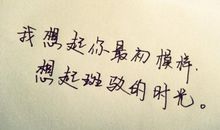 我想起你最初模样.
想起斑驳的时光。